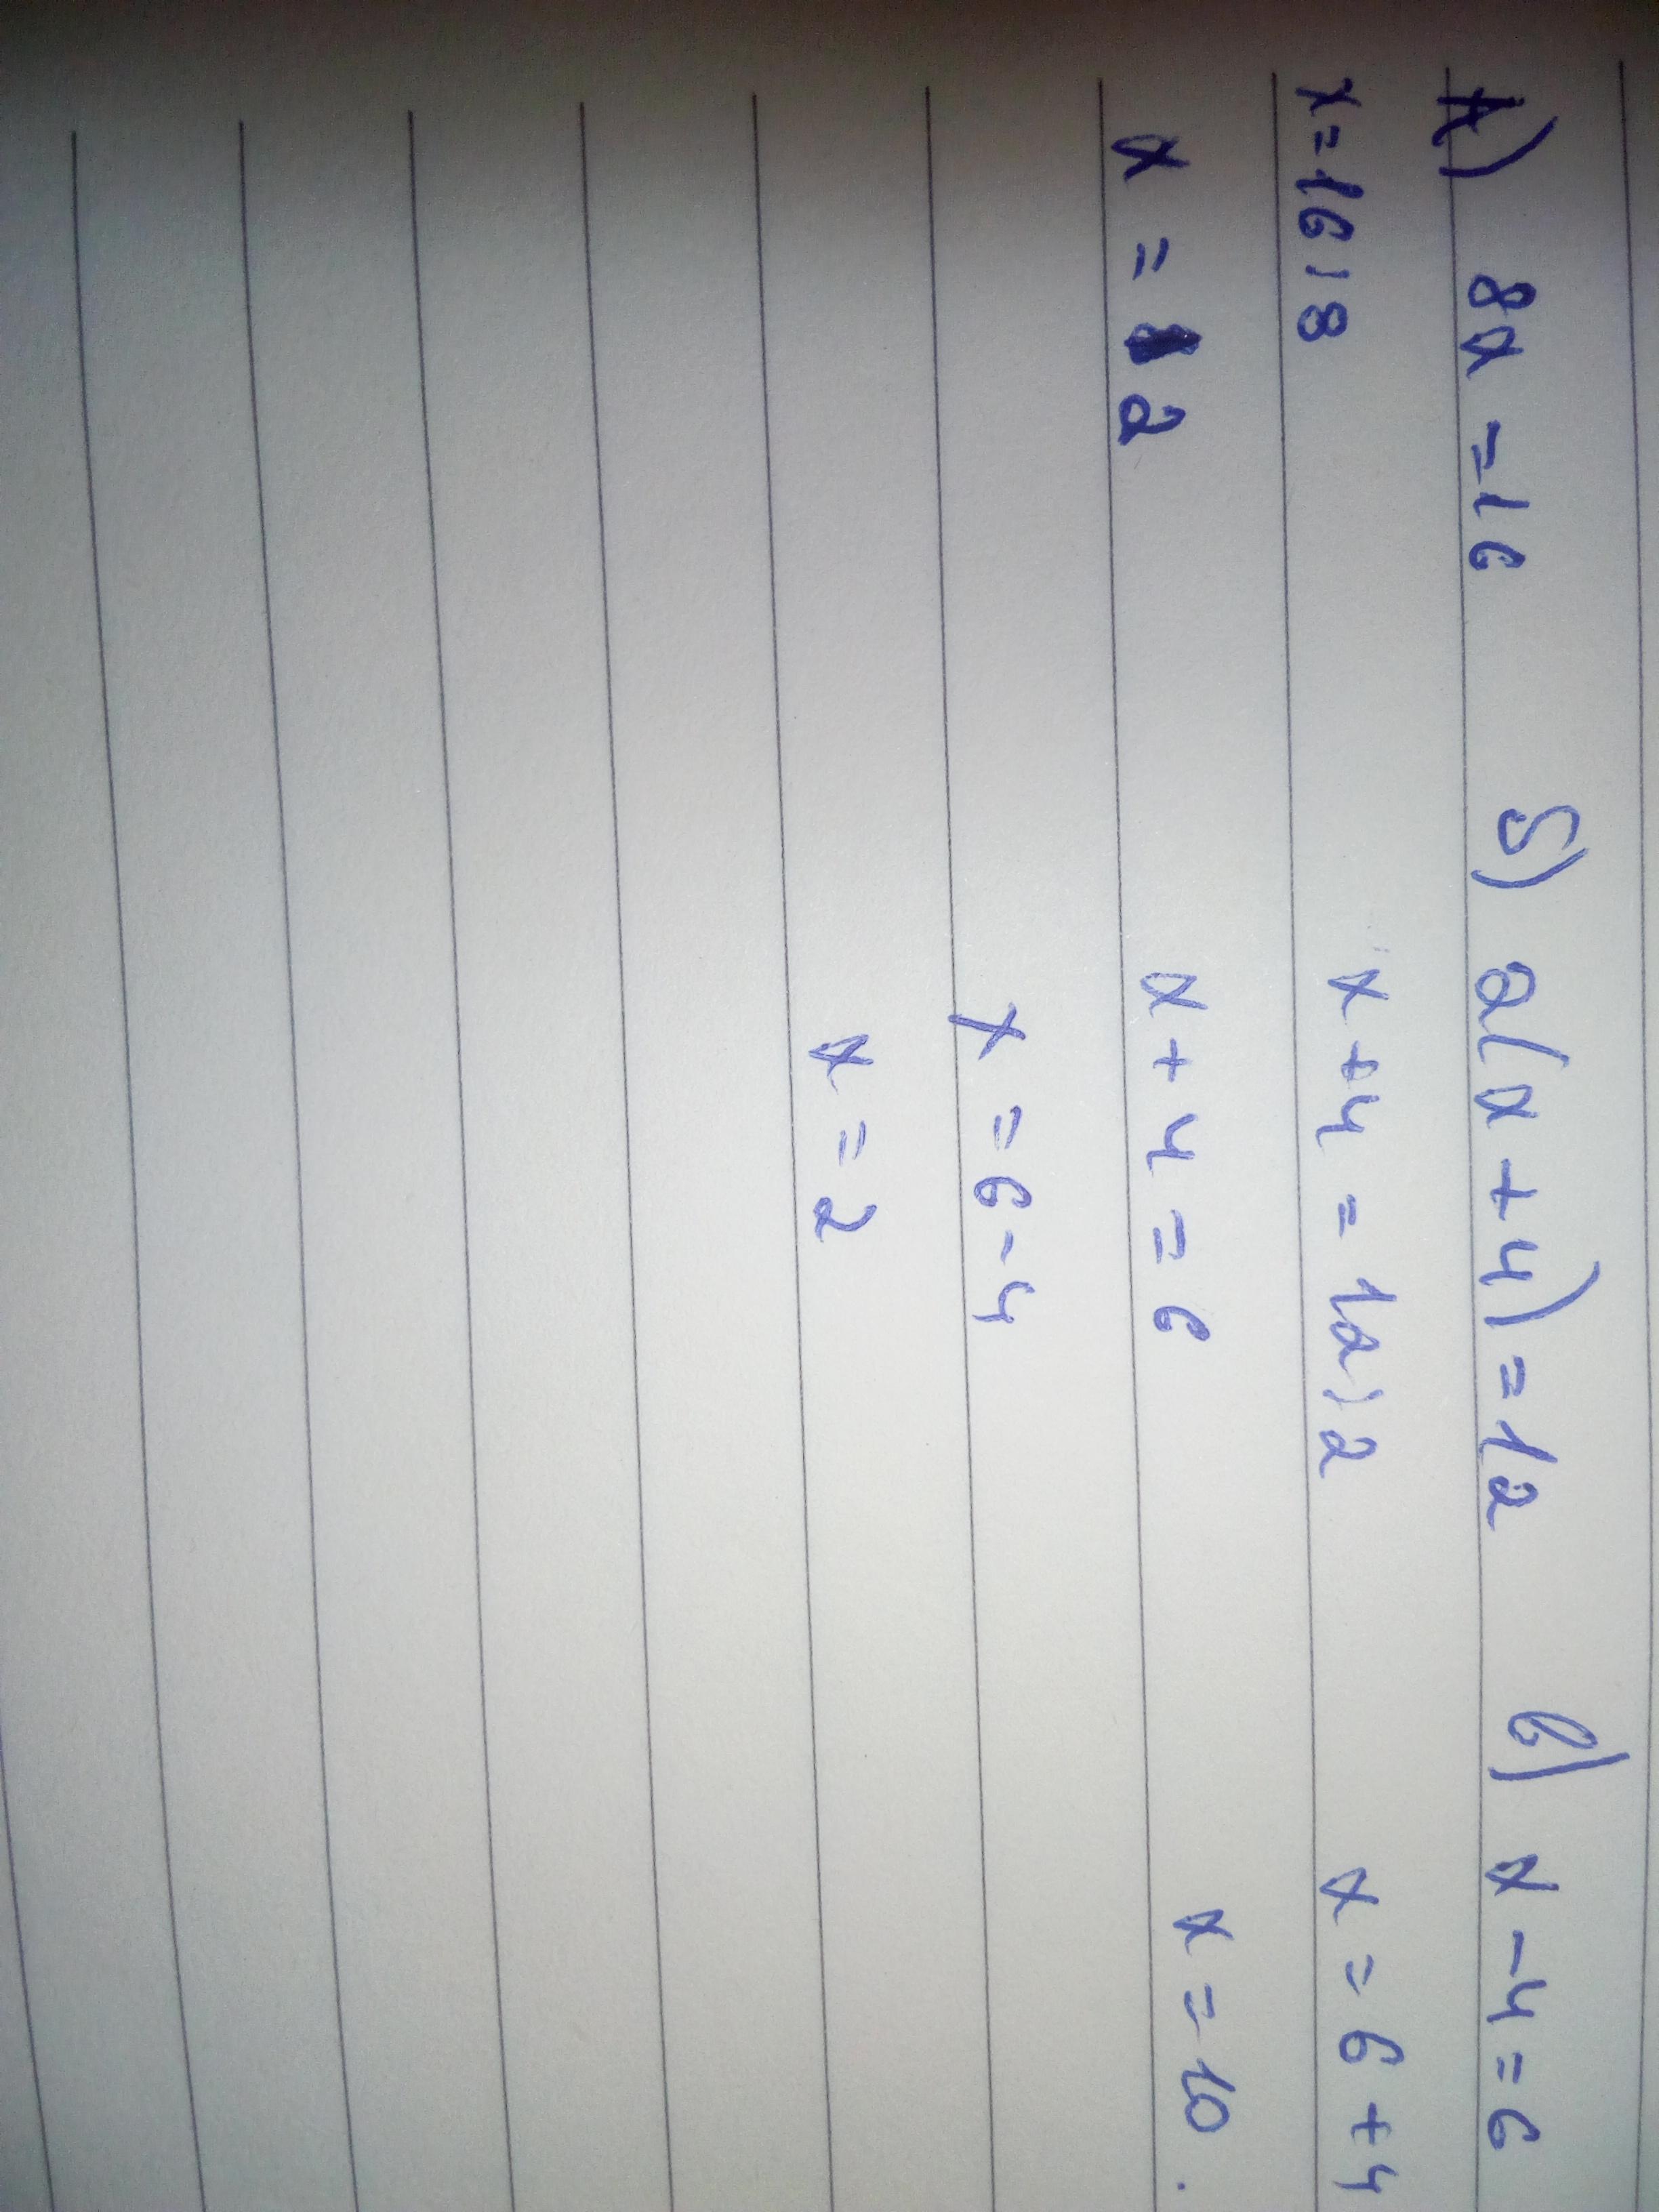 А) 8x = 16 Б) 2(x + 4) = 12 в) x - 4 = 6
x = 16 : 8 x + 4 = 12 : 2 x = 6 + 4
x = 2 x + 4 = 6 x = 10.
x = 6 - 4
x = 2